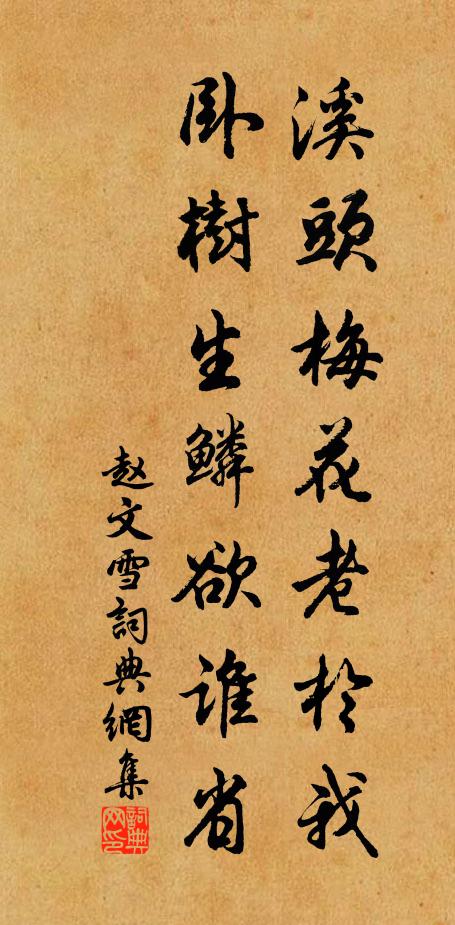 溪頭梅花老於我
卧樹生鱗欲誰省
赵文雪詞典網集
詞典网印